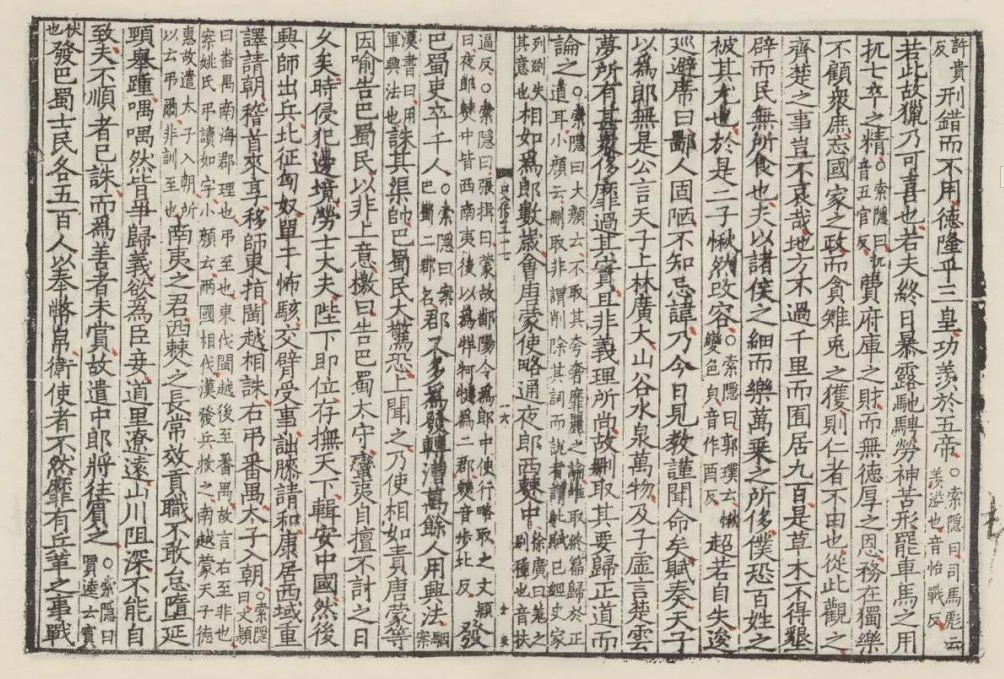 許貴反刑錯而不用德隆乎三皇功羨於五帝○索隱曰司馬彪云羨溢也音怡戰反
若此故獵乃可喜也若夫終日暴露馳騁勞神苦形罷車馬之用
抏士卒之精○索隱曰抏音五官反費府庫之財而無德厚之恩務在獨樂
不顧衆庶忘國家之政而貪雉兎之獲則仁者不由也從此觀之
齊楚之事豈不哀哉地方不過千里而囿居九百是草木不得墾
辟而民無所食也夫以諸侯之細而樂萬乘之所侈僕恐百姓之
被其尤也於是二子愀然改容○索隱曰郭璞云愀變色皃音作酉反超若自失逡
巡避席曰鄙人固陋不知忌諱乃今日見教謹聞命矣賦奏天子
以爲郎無是公言天子上林廣大山谷水泉萬物及子虛言楚雲
夢所有甚衆侈靡過其實且非義理所尚故刪取其要歸正道而
論之○索隱曰大顏云不取其夸奢靡麗之論唯取終篇歸於正道耳小顏云刪取非謂削除其詞而說者謂此賦已經史家
列剟失其意也相如爲郎數歲會唐蒙使略通夜郎西僰中徐廣曰羌之別種也音扶
史傳五十七
十六
逼反○索隱曰張揖曰蒙故鄱陽令爲郎中使行略取之文穎曰夜郎僰中皆西南夷後以爲牂柯犍爲二郡僰音步北反發
巴蜀吏卒千人○索隱曰案巴蜀二郡名郡又多爲發轉漕萬餘人用興法駰案
漢書曰用軍興法也誅其渠帥巴蜀民大驚恐上聞之乃使相如責唐蒙等
因喻告巴蜀民以非上意檄曰告巴蜀太守蠻夷自擅不討之日
久矣時侵犯邊境勞士大夫陛下即位存撫天下輯安中國然後
興師出兵北征匈奴單于怖駭交臂受事詘膝請和康居西域重
譯請朝稽首來享移師東指閩越相誅右弔番禺太子入朝○索隱曰文穎
曰番禺南海郡理也弔至也東伐閩越後至番禺故言右至也案姚氏弔讀如字小顏云兩國相伐漢發兵救之南越蒙天子德
惠故遣太子入朝所以云弔爾非訓至也南夷之君西僰之長常效貢職不敢怠墮延
頸舉踵喁喁然皆爭歸義欲爲臣妾道里遼遠山川阻深不能自
致夫不順者已誅而爲善者未賞故遣中郎將往賓之○索隱曰賈逵云賓
伏也發巴蜀士民各五百人以奉幣帛衛使者不然靡有兵革之事戰